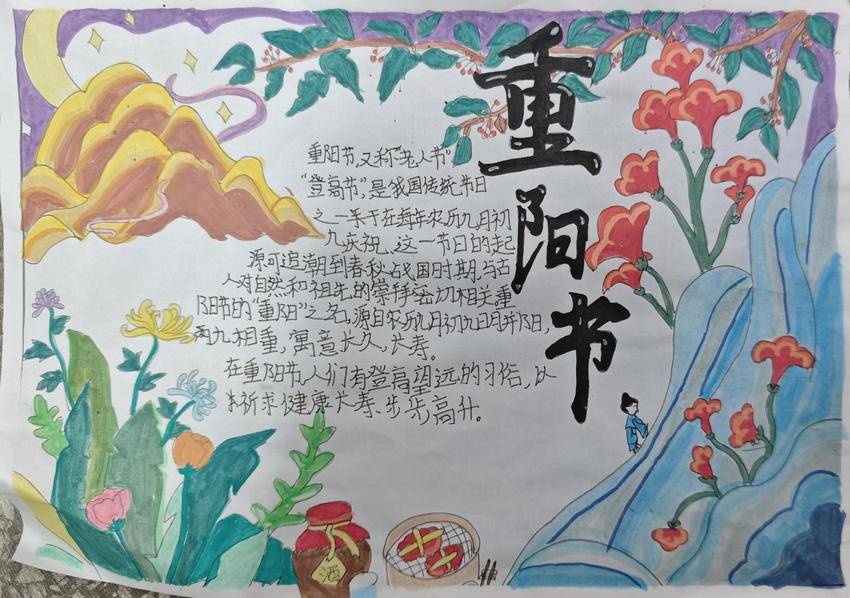 重阳节
重阳节,又称"老人节"
"登高节",是我国传统节日
之一采于在每年农历九月初
九庆祝。这一节日的起
源可追潮到春秋战国时期,与古
人对自然和祖先的崇拜密切相关重
阳节的"重阳"之名,源自农历九月初九日月并阳,
两九相重,寓意长久,长寿。
在重阳节,人们有登高望远的习俗,以
祈求健康长寿、步步高升。
酒